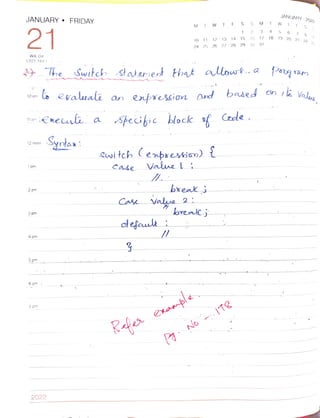 JANUARY • FRIDAY
JANUARY 2022
21
M T W T F S S M T W T F S S
1 2 3 4 5 6 7 8 9
10 11 12 13 14 15 16 17 18 19 20 21 22 23
24 25 26 27 28 29 30 31
WK 04
The Switch statement that allows a Program
to evaluate an expression and based on its Value,
Execute a specific block of Code.
12 noon Syntax:
Switch (expression) {
1 pm case Value 1 :
//.
2 pm break ;
Case Value 2 :
3 pm // break ;
default :
4 pm //
}
5 pm
6 pm
7 pm
Refer example
Pg. No - 178
2022